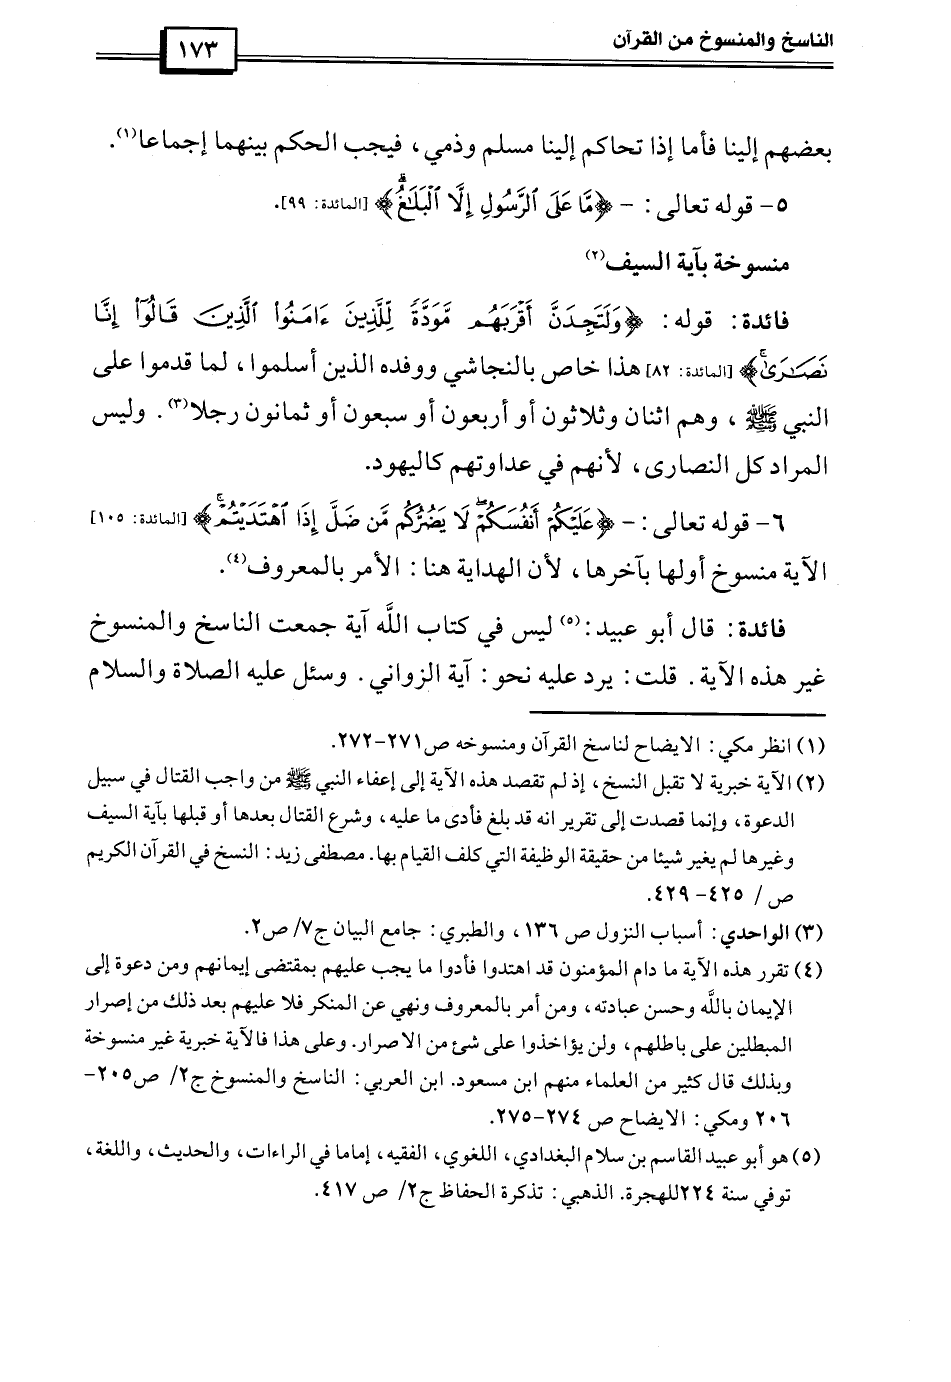 الناسخ والمنسوخ من القرآن
١٧٣
بعضهم إلينا فأما إذا تحاكم إلينا مسلم وذمي، فيجب الحكم بينهما إجماعا(١).
٥- قوله تعالى: - ﴿مَّا عَلَى ٱلرَّسُولِ إِلَّا ٱلۡبَلَٰغُۗ﴾ [المائدة: ٩٩].
منسوخة بآية السيف(٢)
فائدة: قوله: ﴿وَلَتَجِدَنَّ أَقۡرَبَهُم مَّوَدَّةٗ لِّلَّذِينَ ءَامَنُواْ ٱلَّذِينَ قَالُوٓاْ إِنَّا
نَصَٰرَىٰۚ﴾ [المائدة: ٨٢] هذا خاص بالنجاشي ووفده الذين أسلموا، لما قدموا على
النبي ﷺ، وهم اثنان وثلاثون أو أربعون أو سبعون أو ثمانون رجلا(٣). وليس
المراد كل النصارى، لأنهم في عداوتهم كاليهود.
٦- قوله تعالى: - ﴿عَلَيۡكُمۡ أَنفُسَكُمۡۖ لَا يَضُرُّكُم مَّن ضَلَّ إِذَا ٱهۡتَدَيۡتُمۡۚ﴾ [المائدة: ١٠٥]
الآية منسوخ أولها بآخرها، لأن الهداية هنا: الأمر بالمعروف(٤).
فائدة: قال أبو عبيد:(٥) ليس في كتاب اللَّه آية جمعت الناسخ والمنسوخ
غير هذه الآية. قلت: يرد عليه نحو: آية الزواني. وسئل عليه الصلاة والسلام
(١) انظر مكي: الايضاح لناسخ القرآن ومنسوخه ص٢٧١-٢٧٢.
(٢) الآية خبرية لا تقبل النسخ، إذ لم تقصد هذه الآية إلى إعفاء النبي ﷺ من واجب القتال في سبيل
الدعوة، وإنما قصدت إلى تقرير انه قد بلغ فأدى ما عليه، وشرع القتال بعدها أو قبلها بآية السيف
وغيرها لم يغير شيئا من حقيقة الوظيفة التي كلف القيام بها. مصطفى زيد: النسخ في القرآن الكريم
ص / ٤٢٥- ٤٢٩.
(٣) الواحدي: أسباب النزول ص ١٣٦، والطبري: جامع البيان ج٧/ ص٢.
(٤) تقرر هذه الآية ما دام المؤمنون قد اهتدوا فأدوا ما يجب عليهم بمقتضى إيمانهم ومن دعوة إلى
الإيمان باللَّه وحسن عبادته، ومن أمر بالمعروف ونهي عن المنكر فلا عليهم بعد ذلك من إصرار
المبطلين على باطلهم، ولن يؤاخذوا على شئ من الاصرار. وعلى هذا فالآية خبرية غير منسوخة
وبذلك قال كثير من العلماء منهم ابن مسعود. ابن العربي: الناسخ والمنسوخ ج٢/ ص٢٠٥-
٢٠٦ ومكي: الايضاح ص ٢٧٤-٢٧٥.
(٥) هو أبو عبيد القاسم بن سلام البغدادي، اللغوي، الفقيه، إماما في الراءات، والحديث، واللغة،
توفي سنة ٢٢٤للهجرة. الذهبي: تذكرة الحفاظ ج٢/ ص ٤١٧.